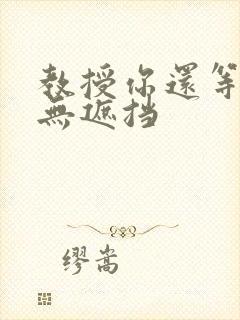 教授你還等
無遮挡
缪嵩